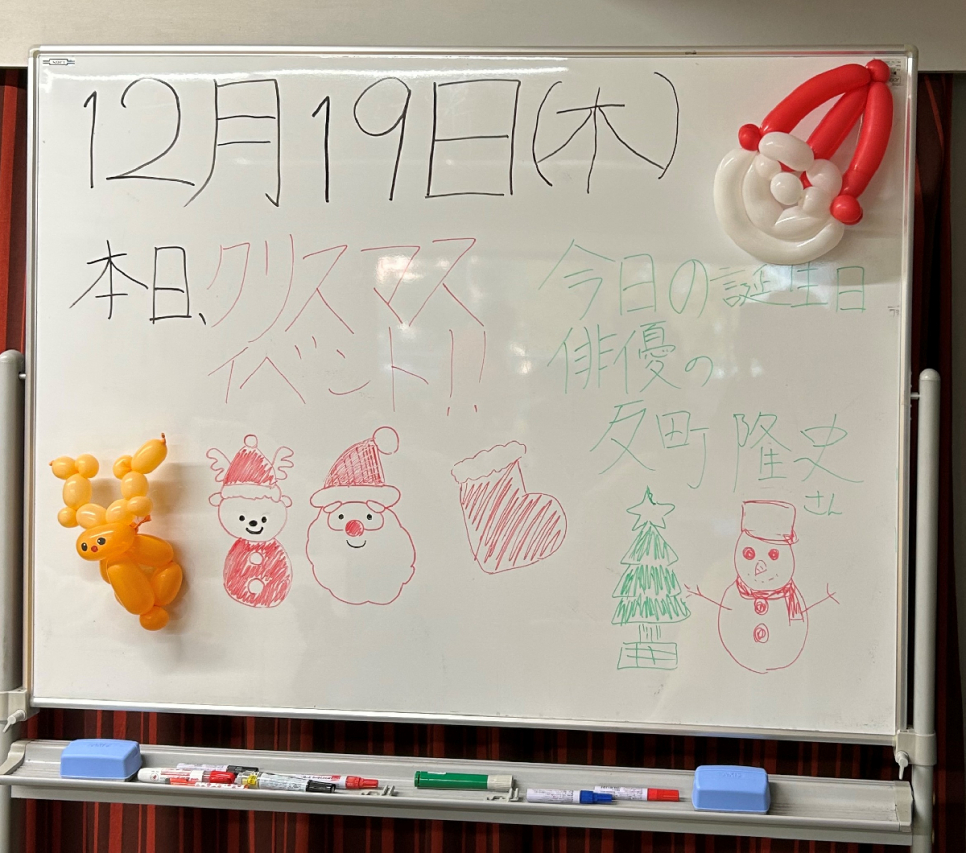 12月19日(木)
本日、クリスマス
イベント!!
今日の誕生日
俳優の
反町 隆史
さん